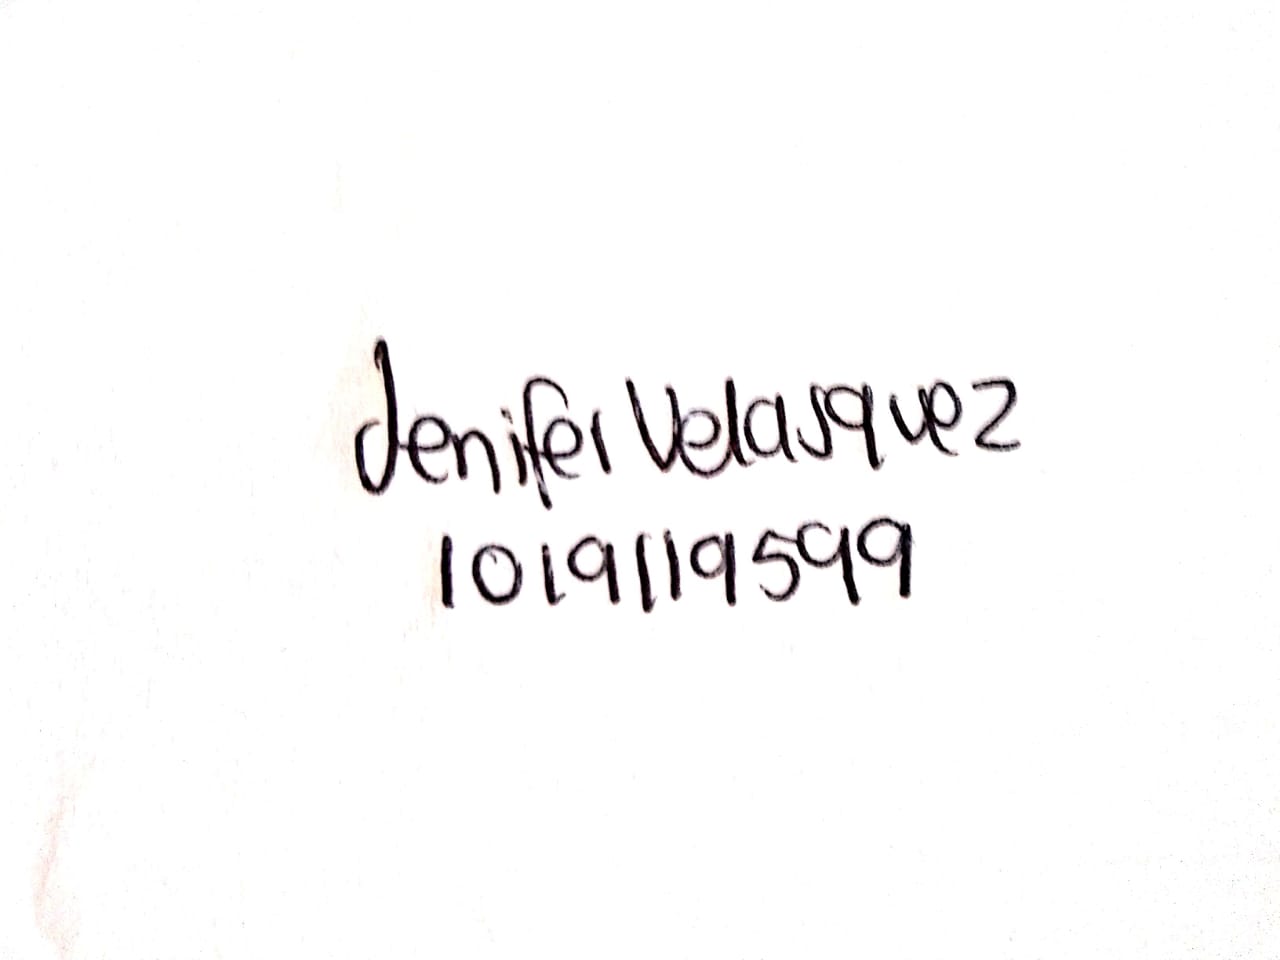 Jenifer Velasquez
1019119599